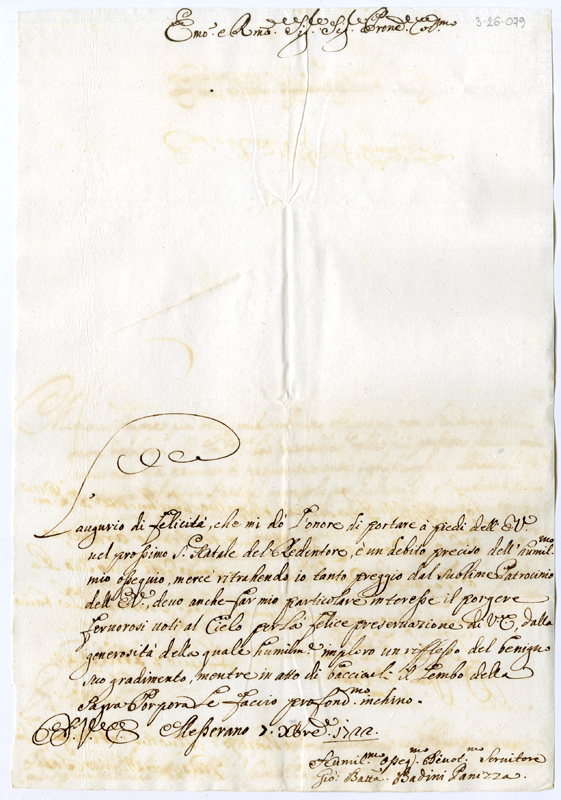 3-26-079
Emo. e Rmo. Sig.r Sig.r Prone. Col.mo
L'augurio di felicità, che mi dò l'onore di portare à piedi dell'E.V.
nel prossimo S. Natale del Redentore, è un debito preciso dell'humil.mo
mio ossequio, mercè ritrahendo io tanto preggio dal sublime Patrocinio
dell'E.V., devo anche far mio particolare interesse il porgere
fervorosi voti al Cielo per la felice preservazione di V.E., dalla
generosità della quale humilme. imploro un riflesso del benigno
suo gradimento, mentre in atto di bacciarle il Lembo della
Sagra Porpora le faccio profond.mo inchino.
Di V. E. Messerano 7. Xbre. 1722.
Humil.mo Osseq.mo Divot.mo Servitore
Gio: Batta. Badini Panizza.